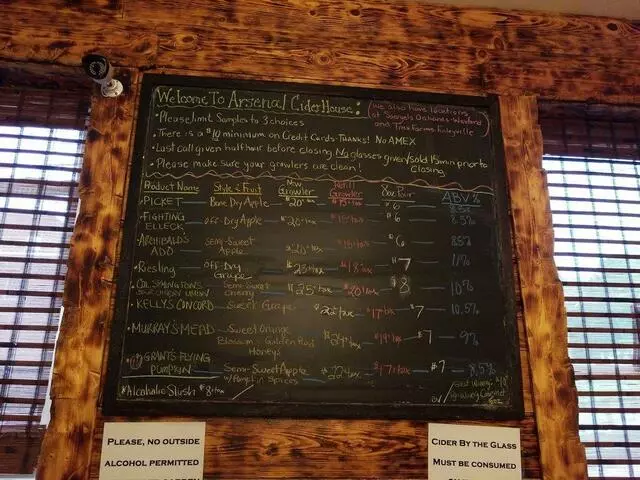 Welcome To Arsenal CiderHouse:
We also have locations
at Soergels Orchards-Wexford
and Trax Farms Finleyville
•Please limit Samples to 3 choices
•There is a $10 minimum on Credit Cards-THANKS! No AMEX
•Last call given half hour before closing No glasses given/sold 15min prior to
closing
•Please make sure your growlers are clean!
Product Name Style & Fruit New Growler Refill Growler 8oz Pour ABV%
•PICKET — Bone Dry Apple — $20+tax — $15+tax — $6 — 8.5%
•FIGHTING
ELLECK — Off-Dry Apple — $20+tax — $15+tax — $6 — 8.5%
•ARCHIBALD'S
ADO — Semi-Sweet
Apple — $20+tax — $15+tax — $6 — 8.5%
•Riesling — Off-Dry
Grape — $23+tax — $18+tax — $7 — 11%
Semi-Sweet
Cherry — $25+tax — $20+tax — $8 — 10%
•KELLY'S CONCORD — Sweet Grape — $22+tax — $17+tax — $7 — 10.5%
•MURRAY'S MEAD — Sweet Orange
Blossom + Golden Rod
Honeys — $24+tax — $19+tax — $7 — 9%
•GRANT'S FLYING
PUMPKIN — Semi-Sweet Apple
w/Pumpkin Spices — $22+tax — $17+tax — $7 — 8.5%
*Alcoholic Slush $8+tax
PLEASE, NO OUTSIDE
ALCOHOL PERMITTED
CIDER BY THE GLASS
MUST BE CONSUMED